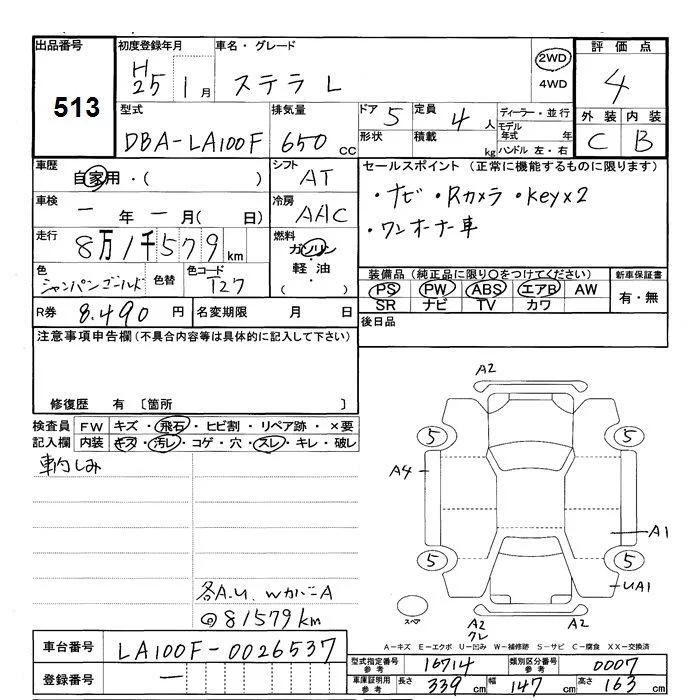 出品番号 初度登録年月 車名・グレード 評価点
513 H25 1月 ステラ L 2WD 4WD 4
型式 排気量 ドア 5 定員 4人 ディーラー・並行 外装 内装
DBA-LA100F 650 CC 形状 積載 kg モデル年式 年 ハンドル 左・右 C B
車歴 自家用・( ) シフト AT セールスポイント (正常に機能するものに限ります)
車検 一年一月(日) 冷房 AAC ・ナビ・Rカメラ・Key×2
・ワンオーナー車
走行 8万1千579km 燃料 ガソリン・軽油・( )
色 シャンパンゴールド 色替 色コード T27
装備品 (純正品に限り○をつけてください) 新車保証書
PS PW ABS エアB AW 有・無
SR ナビ TV カワ
R券 8.490円 名変期限 月 日 後日品
注意事項申告欄(不具合内容等は具体的に記入して下さい)
修復歴 有 〔箇所 〕
検査員 FW キズ・飛石・ヒビ割・リペア跡・×要
記入欄 内装 キズ・汚レ・コゲ・穴・スレ・キレ・破レ
車内しみ
各A.U. WカバーA
@81579km
A2
5 5
A4
A1
5 5
UA1
スペア
A2 クレ A2
A-キズ E-エクボ U-凹み W-補修跡 S-サビ C-腐食 XX-交換済
車台番号 LA100F-0026537
型式指定番号 参考 16714 類別区分番号 参考 0007
登録番号 一
車庫証明用 参考 長さ 339cm 幅 147cm 高さ 163cm